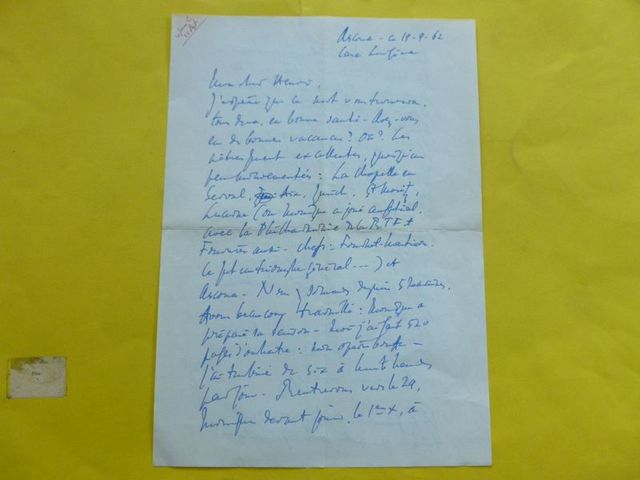 Ascona - ce 19-9-62
Casa
Mon cher Henri,
J'espère que ce mot vous trouvera,
tous deux, en bonne santé - Avez-vous
eu de bonnes vacances? Où? Les
nôtres furent excellentes, quoiqu'un
peu mouvementées : La Chapelle en
Serval, Aix, Zürich, St Moritz,
Lucerne (où Monique a joué au festival
avec la Philharmonie de la RTF +
Fournier aussi - chefs :
Ce fut un triomphe général ---) et
Ascona - Nous y sommes depuis 5 semaines.
Avons beaucoup travaillé : Monique a
préparé sa saison - moi j'ai fait 520
pages d'orchestre : mon opéra bouffe -
j'ai turbiné de six à huit heures
par jour - Rentrerons vers le 24,
Monique devant jouer, le 1er X, à